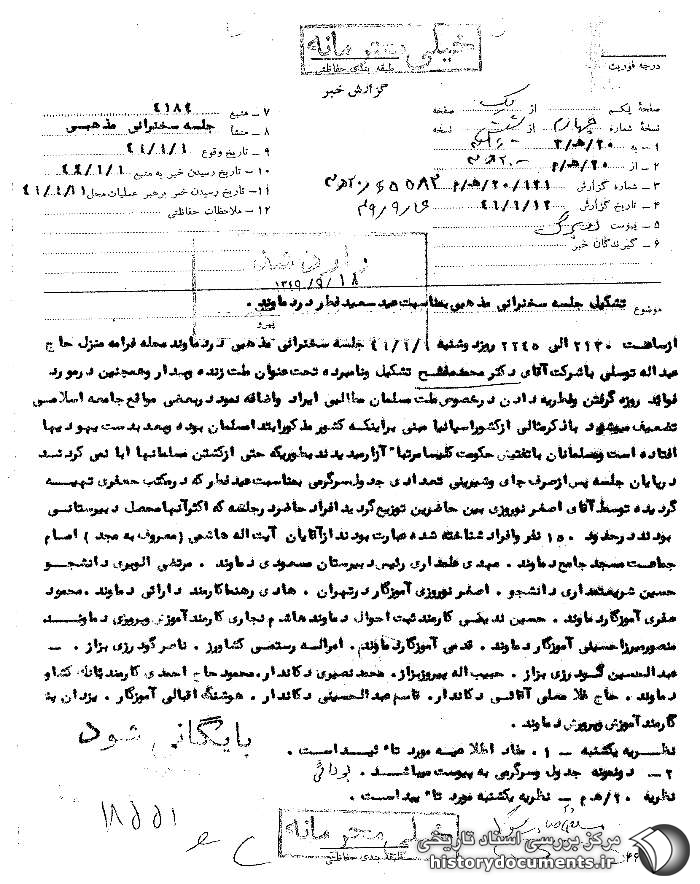 خیلی محرمانه
طبقه بندی حفاظتی
درجه فوریت
گزارش خبر
صفحهٔ یکم از یک صفحه
نسخهٔ شماره چهارم از نسخه
۱ – به
۲ – از ۲۰/ه‍م
۳ – شماره گزارش
۴ – تاریخ گزارش
۵ – پیوست
۶ – گیرندگان خبر
۷ – منبع ۴۱۸۴
۸ – منشأ جلسه سخنرانی مذهبی
۹ – تاریخ وقوع
۱۰ – تاریخ رسیدن خبر به منبع
۱۱ – تاریخ رسیدن خبر برهبر عملیات محل
۱۲ – ملاحظات حفاظتی
۱۳۴۹/۹/۱۸
موضوع تشکیل جلسه سخنرانی مذهبی بمناسبت عید سعید فطر در دماوند .
ازساعت ۲۱۳۰ الی ۲۲۴۵ روز دوشنبه جلسه سخنرانی مذهبی در دماوند محله فرامه منزل حاج
عبداله توسلی با شرکت آقای دکتر محمد مفتح تشکیل ونامبرده تحت عنوان ملت زنده وبیدار وهمچنین در مورد
فوائد روزه گرفتن وفطریه دادن در خصوص ملت مسلمان مطالبی ایراد واضافه نمود در بعضی مواقع جامعه اسلامی
تضعیف میشود با ذکر مثالی از کشور اسپانیا مبنی بر اینکه کشور مذکور ابتدا مسلمان بوده وبعد بدست یهودیها
افتاده است ومسلمانان با تفتیش حکومت کلیسا مرتبا" آزار میدیدند بطوریکه حتی از کشتن مسلمانها ابا نمی کردند
در پایان جلسه پس از صرف چای وشیرینی تعدادی جدول سرگرمی بمناسبت عید فطر که در مکتب جعفری تهیه
گردیده توسط آقای اصغر نوروزی بین حاضرین توزیع گردید افراد حاضر در جلسه که اکثر آنها محصل دبیرستانی
بودند در حدود ۱۵۰ نفر وافراد شناخته شده عبارت بودند از آقایان آیت اله هاشمی (معروف به مجد ) امام
جماعت مسجد جامع دماوند . مهدی علمداری رئیس دبیرستان مسعودی دماوند . مرتضی الویری دانشجو
حسین شریعتمداری دانشجو . اصغر نوروزی آموزگار در تهران . هادی رهنما کارمند دارائی دماوند . محمود
صفری آموزگار دماوند . حسین کارمند ثبت احوال دماوند هاشم نجاری کارمند آموزش وپرورش دماوند
منصور میرزا حسینی آموزگار دماوند . قدمی آموزگار دماوند . امراله رستمی کشاورز . ناصر گودرزی بزاز . –
عبدالحسین گودرزی بزاز . حبیب اله پیروز بزاز . محمد نصیری دکاندار . محمود حاج احمدی کارمند بانک کشاو
دماوند . حاج غلامعلی آقائی دکاندار . قاسم عبدالحسینی دکاندار . هوشنگ اقبالی آموزگار . یزدان
کارمند آموزش وپرورش دماوند .
نظریه یکشنبه – ۱ . مفاد اطلاعیه مورد تائید است .
۲ – دو نمونه جدول وسرگرمی به پیوست میباشد .
نظریه ۲۰/ه‍م – نظریه یکشنبه مورد تائید است .
بایگانی شود
خیلی محرمانه
طبقه بندی حفاظتی
مرکز بررسی اسناد تاریخی
historydocuments.ir